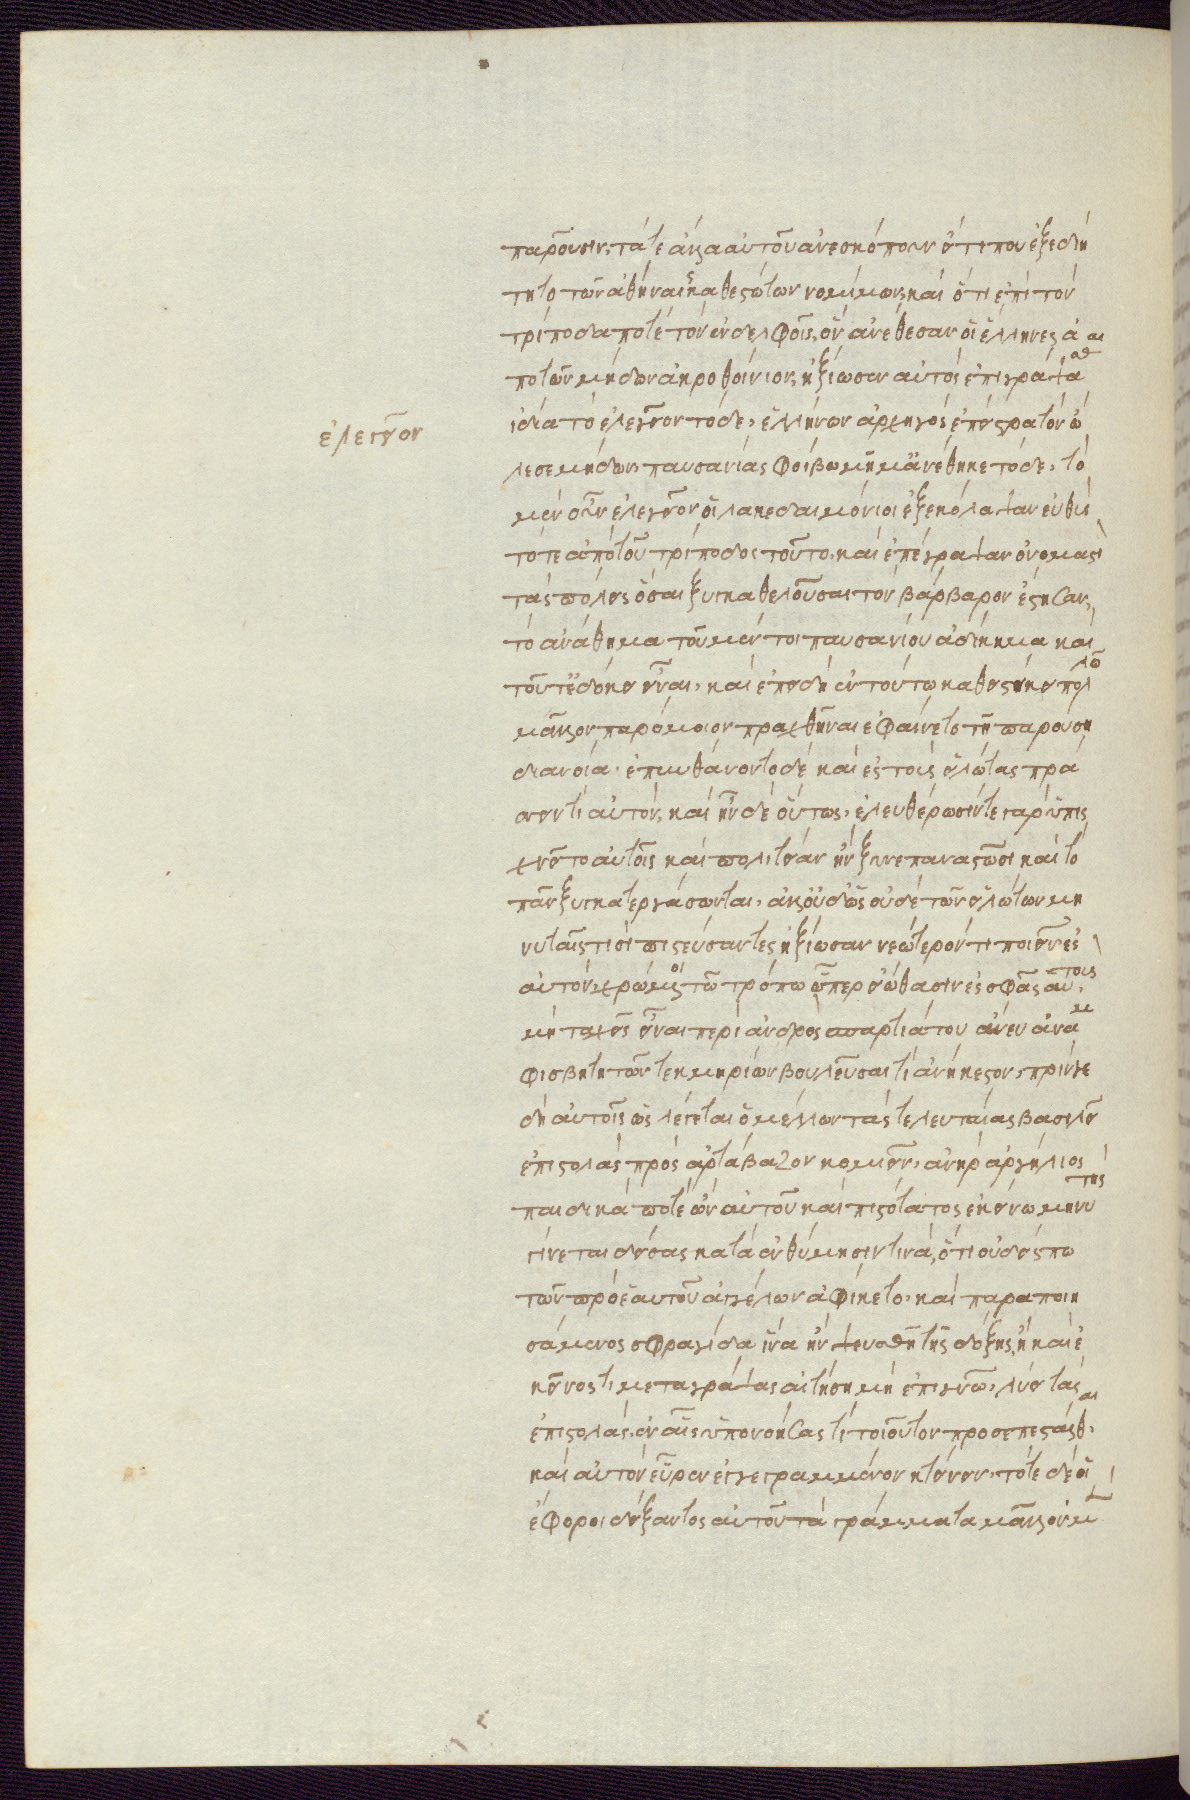 παροῦσιν, τά τε ἄλλα αὐτοῦ ἀνεσκόπουν εἴ τι που ἐξεδιῄ
τητο τῶν ἀθηναι καθεστώτων νομίμων, καὶ ὅτι ἐπὶ τὸν
τρίποδα ποτὲ τὸν ἐν δελφοῖς, ὃν ἀνέθεσαν οἱ ἕλληνες ἀ
πὸ τῶν μήδων ἀκροθοίνιον, ἠξίωσεν αὐτὸς ἐπιγράψασθαι
ἰδία τὸ ἐλεγεῖον τόδε, ἑλλήνων ἀρχηγὸς ἐπεὶ στρατὸν ὤ
ἐλεγεῖον
λεσε μήδων, παυσανίας φοίβω μνῆμ' ἀνέθηκε τόδε, τὸ
μὲν οὖν ἐλεγεῖον οἱ λακεδαιμόνιοι ἐξεκόλαψαν εὐθὺ
τότε ἀπὸ τοῦ τρίποδος τοῦτο, καὶ ἐπέγραψαν ὀνομαστὶ
τὰς πόλεις ὅσαι ξυγκαθελοῦσαι τὸν βάρβαρον ἔστησαν,
τὸ ἀνάθημα τοῦ μέν τοι παυσανίου ἀδίκημα καὶ
τοῦτ' ἐδόκει εἶναι, καὶ ἐπειδὴ ἐν τούτω καθειστήκει πολλῶ
μᾶλλον παρόμοιον πραχθῆναι ἐφαίνετο τῇ παρούσῃ
διανοία. ἐπυνθάνοντο δὲ καὶ ἐς τοὺς εἵλωτας πρά
σσειν τι αὐτόν, καὶ ἦν δὲ οὕτως, ἐλευθέρωσίν τε γὰρ ὑπισ
χνεῖτο αὐτοῖς καὶ πολιτείαν ἢν ξυνεπαναστῶσι καὶ τὸ
πᾶν ξυγκατεργάσωνται, ἀλλ' οὐδ' ὣς οὐδὲ τῶν εἱλώτων μη
νυταῖς τισὶ πιστεύσαντες ἠξίωσαν νεώτερόν τι ποιεῖν ἐς
αὐτόν, χρώμενοι τῶ τρόπω ὧπερ εἰώθασιν ἐς σφᾶς αὐτοὺς,
μὴ ταχεῖς εἶναι περὶ ἀνδρὸς σπαρτιάτου ἄνευ ἀναμ
φισβητήτων τεκμηρίων βουλεῦσαι τὶ ἀνήκεστον, πρίν γε
δὴ αὐτοῖς ὡς λέγεται ὁ μέλλων τὰς τελευταίας βασιλεῖ
ἐπιστολὰς πρὸς ἀρτάβαζον κομιεῖν, ἀνὴρ ἀργίλιος
παιδικά ποτε ὢν αὐτοῦ καὶ πιστότατος ἐκείνω μηνυτὴς
γίνεται δείσας κατὰ ἐνθύμησίν τινά, ὅτι οὐδείς πω
τῶν πρὸ ἑαυτοῦ ἀγγέλων ἀφίκετο, καὶ παραποιη
σάμενος σφραγίδα ἵνα ἢν ψευσθῇ τῆς δόξης, ἢ καὶ ἐ
κεῖνος τι μεταγράψας αἰτήσῃ μὴ ἐπιγνῶ, λύει τὰς
ἐπιστολάς, ἐν αἷς ὑπονοήσας τὶ τοιοῦτον προσεπεστάλθαι
καὶ αὐτὸν εὗρεν ἐγγεγραμμένον κτείνειν, τότε δὲ οἱ
ἔφοροι δείξαντος αὐτοῦ τὰ γράμματα μᾶλλον μὲν